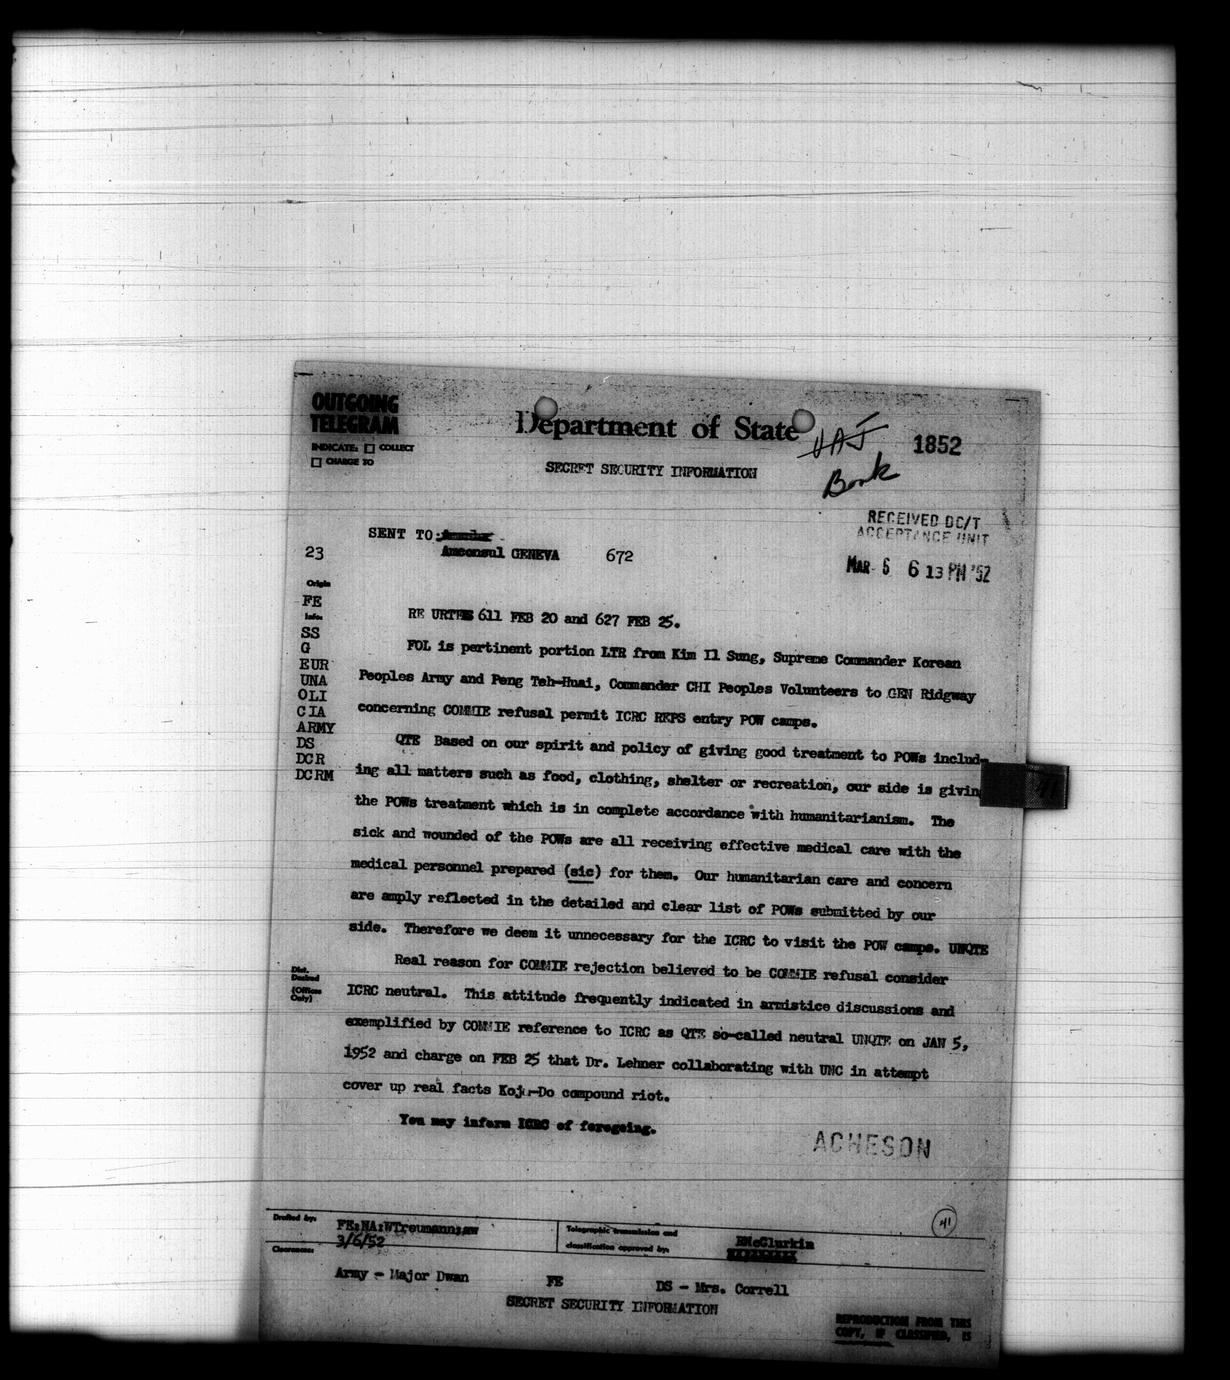 OUTGOING
TELEGRAM
INDICATE: COLLECT
CHARGE TO
Department of State
1852
SECRET SECURITY INFORMATION
Book
RECEIVED DC/T
ACCEPTANCE UNIT
MAR 6 6 13 PM '52
SENT TO:
Amconsul GENEVA 672
23
Origin
FE
Info:
SS
G
EUR
UNA
OLI
CIA
ARMY
DS
DCR
DCRM
RE URTELS 611 FEB 20 and 627 FEB 25.
FOL is pertinent portion LTR from Kim Il Sung, Supreme Commander Korean
Peoples Army and Peng Teh-Huai, Commander CHI Peoples Volunteers to GEN Ridgway
concerning COMMIE refusal permit ICRC REPS entry POW camps.
QTE Based on our spirit and policy of giving good treatment to POWs includ-
ing all matters such as food, clothing, shelter or recreation, our side is giving
the POWs treatment which is in complete accordance with humanitarianism. The
sick and wounded of the POWs are all receiving effective medical care with the
medical personnel prepared (sic) for them. Our humanitarian care and concern
are amply reflected in the detailed and clear list of POWs submitted by our
side. Therefore we deem it unnecessary for the ICRC to visit the POW camps. UNQTE
Real reason for COMMIE rejection believed to be COMMIE refusal consider
Dist.
Desired
(Offices
Only)
ICRC neutral. This attitude frequently indicated in armistice discussions and
exemplified by COMMIE reference to ICRC as QTE so-called neutral UNQTE on JAN 5,
1952 and charge on FEB 25 that Dr. Lehner collaborating with UNC in attempt
cover up real facts Koje-Do compound riot.
You may inform ICRC of foregoing.
ACHESON
41
Drafted by:
FE:NA:WTreumann:
3/6/52
Telegraphic transmission and
classification approved by:
BMcGlurkin
Clearances:
Army - Major Dwan FE DS - Mrs. Correll
SECRET SECURITY INFORMATION
REPRODUCTION FROM THIS
COPY, IF CLASSIFIED, IS